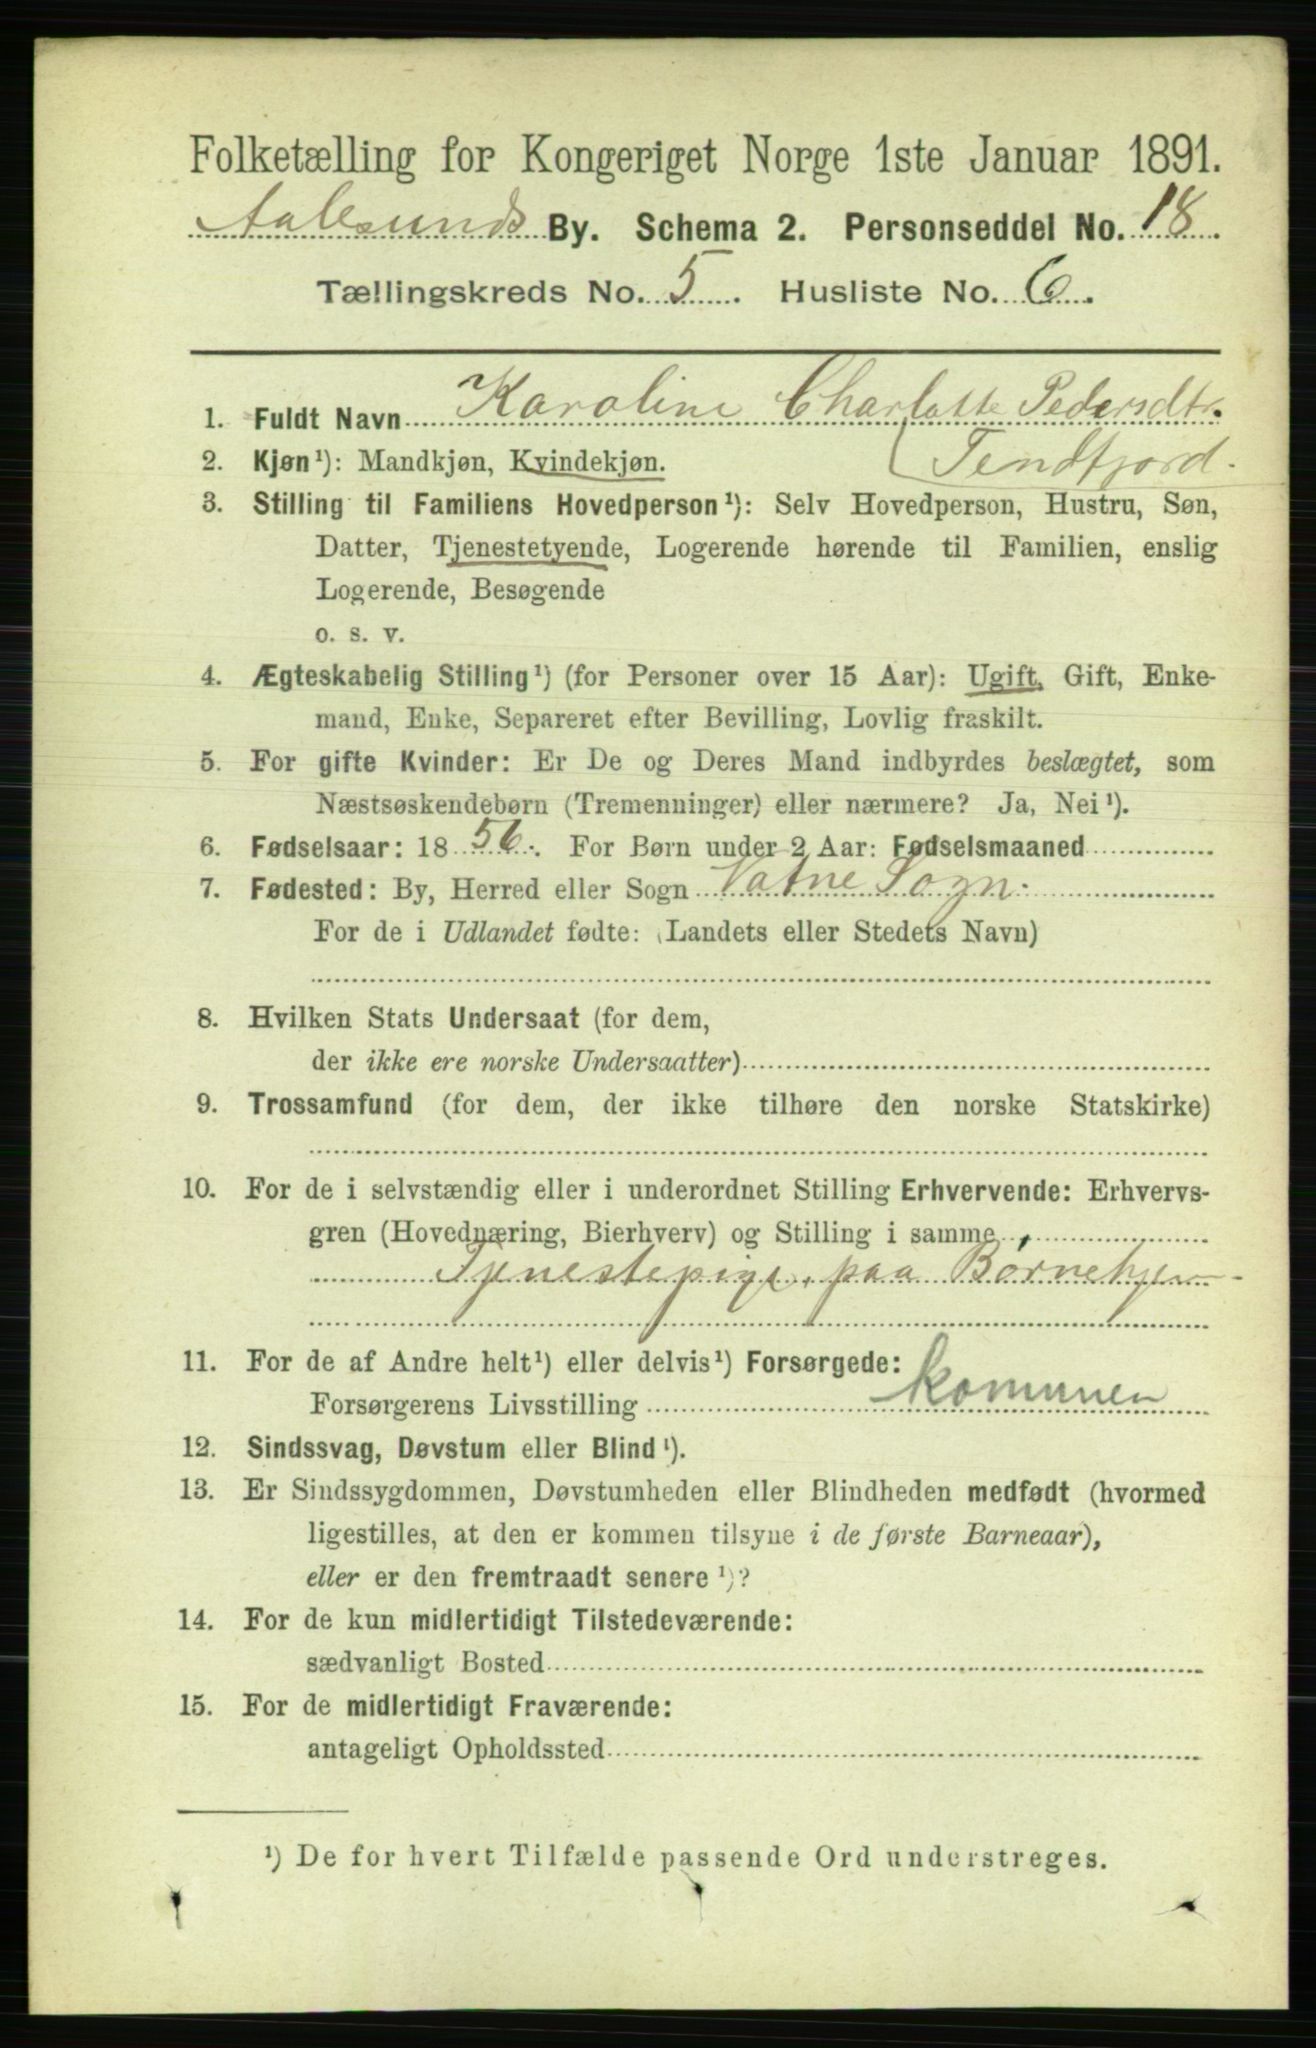 Folketælling for Kongeriget Norge 1ste Januar 1891.
Aalesunds By. Schema 2. Personseddel No. 18.
Tællingskreds No. 5. Husliste No. 6.
1. Fuldt Navn Karoline Charlotte Pedersdtr.
2. Kjøn¹): Mandkjøn, Kvindekjøn. Tendfjord.
3. Stilling til Familiens Hovedperson¹): Selv Hovedperson, Hustru, Søn,
Datter, Tjenestetyende, Logerende hørende til Familien, enslig
Logerende, Besøgende
o. s. v.
4. Ægteskabelig Stilling¹) (for Personer over 15 Aar): Ugift, Gift, Enke-
mand, Enke, Separeret efter Bevilling, Lovlig fraskilt.
5. For gifte Kvinder: Er De og Deres Mand indbyrdes beslægtet, som
Næstsøskendebørn (Tremenninger) eller nærmere? Ja, Nei¹).
6. Fødselsaar: 1856. For Børn under 2 Aar: Fødselsmaaned
7. Fødested: By, Herred eller Sogn Vatne Sogn.
For de i Udlandet fødte: (Landets eller Stedets Navn)
8. Hvilken Stats Undersaat (for dem,
der ikke ere norske Undersaatter)
9. Trossamfund (for dem, der ikke tilhøre den norske Statskirke)
10. For de i selvstændig eller i underordnet Stilling Erhvervende: Erhvervs-
gren (Hovednæring, Bierhverv) og Stilling i samme
Tjenestepige, paa Børnehjem
11. For de af Andre helt¹) eller delvis¹) Forsørgede:
Forsørgerens Livsstilling komunen
12. Sindssvag, Døvstum eller Blind¹).
13. Er Sindssygdommen, Døvstumheden eller Blindheden medfødt (hvormed
ligestilles, at den er kommen tilsyne i de første Barneaar),
eller er den fremtraadt senere¹)?
14. For de kun midlertidigt Tilstedeværende:
sædvanligt Bosted
15. For de midlertidigt Fraværende:
antageligt Opholdssted
¹) De for hvert Tilfælde passende Ord understreges.